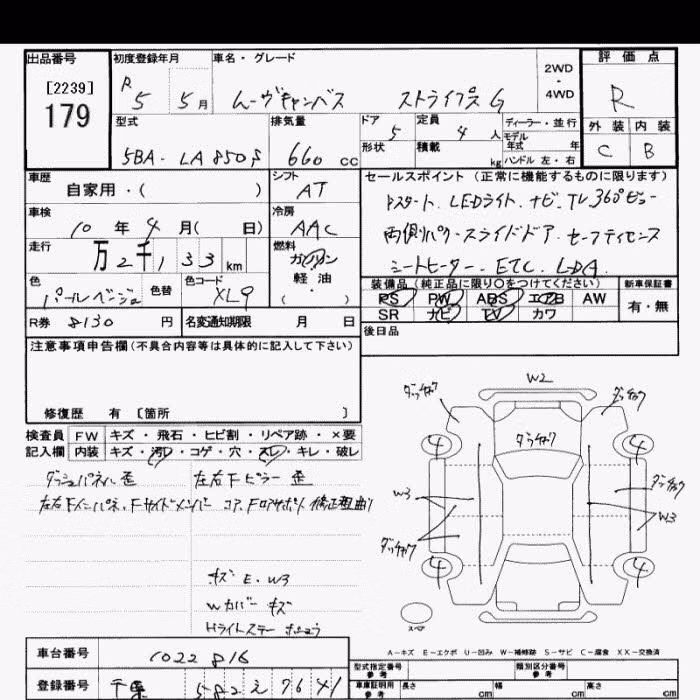 出品番号
[2239]
179
初度登録年月
R 5 5月
車名・グレード
ムーヴキャンバス ストライプス G
2WD
・
4WD
評価点
R
外装 内装
C B
型式
5BA - LA850S
排気量
660 cc
ドア
5
定員
4 人
形状
積載
kg
ディーラー・並行
モデル
年式 年
ハンドル 左・右
車歴
自家用・( )
シフト
AT
車検
10 年 4 月( 日)
冷房
AAC
走行
万 2 千 1 33 km
燃料
ガソリン
軽油
( )
色
パールベージュ
色替
色コード
XL9
R券 8130 円
名変通知期限 月 日
セールスポイント (正常に機能するものに限ります)
Pスタート. LEDライト. ナビ. TV. 360°ビュー
両側Pパワースライドドア. セーフティセンス
シートヒーター. ETC. LDA.
装備品 (純正品に限り○をつけてください)
PS PW ABS エアB AW
SR ナビ TV カワ
新車保証書
有・無
後日品
注意事項申告欄(不具合内容等は具体的に記入して下さい)
修復歴 有 [箇所 ]
検査員 FW キズ・飛石・ヒビ割・リペア跡・×要
記入欄 内装 キズ・汚レ・コゲ・穴・スレ・キレ・破レ
ダッシュパネル 歪 左右Fピラー 歪
左右Fインパネ、Fサイドメンバー コア、Fロアサポート 修正曲り
キズ E. W3
Wカバー キズ
Hライトステー
W2
ダッチャク
ダッチャク
ダッチャク
4
4
W3
ダッチャク
W3
ダッチャク
4
4
スペア
A−キズ E−エクボ U−凹み W−補修跡 S−サビ C−腐食 XX−交換済
車台番号 1022816
登録番号 千葉 582 え 7641
型式指定番号
参考
類別区分番号
参考
車庫証明用
参考
長さ cm 幅 cm 高さ cm